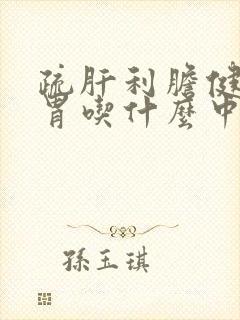 疏肝利膽健
胃喫什麼中
孫玉琪